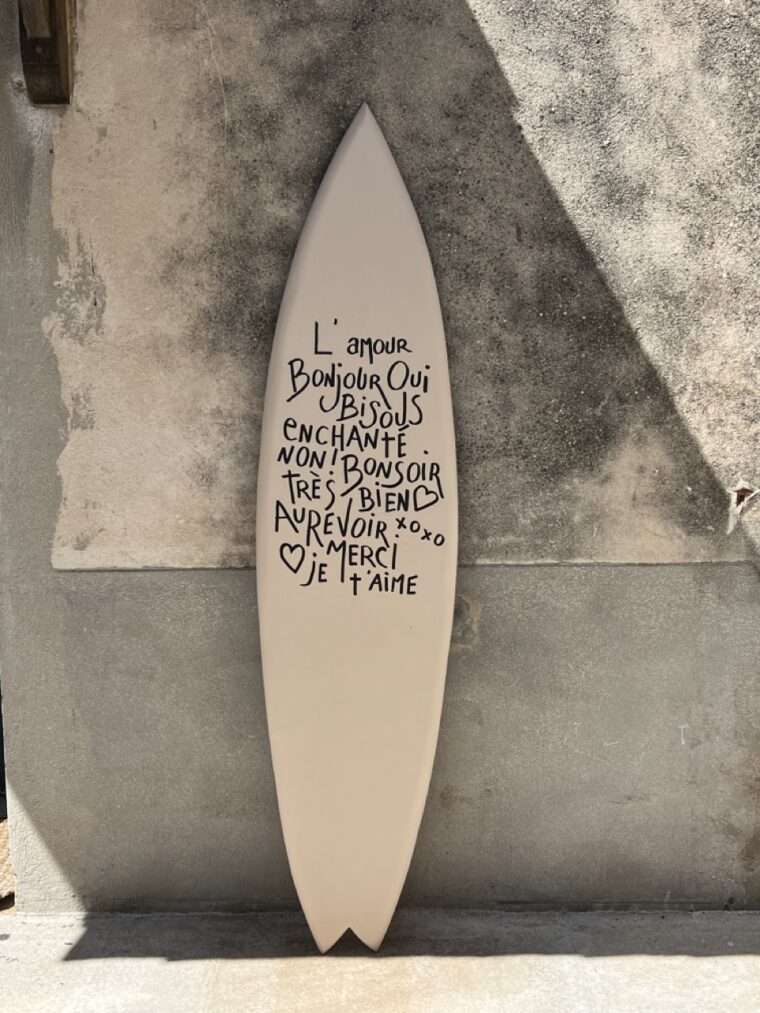 L'amour
Bonjour Oui
Bisous
enchanté
non! Bonsoir
très bien ♡
Au revoir. xoxo
♡ je merci
t'aime